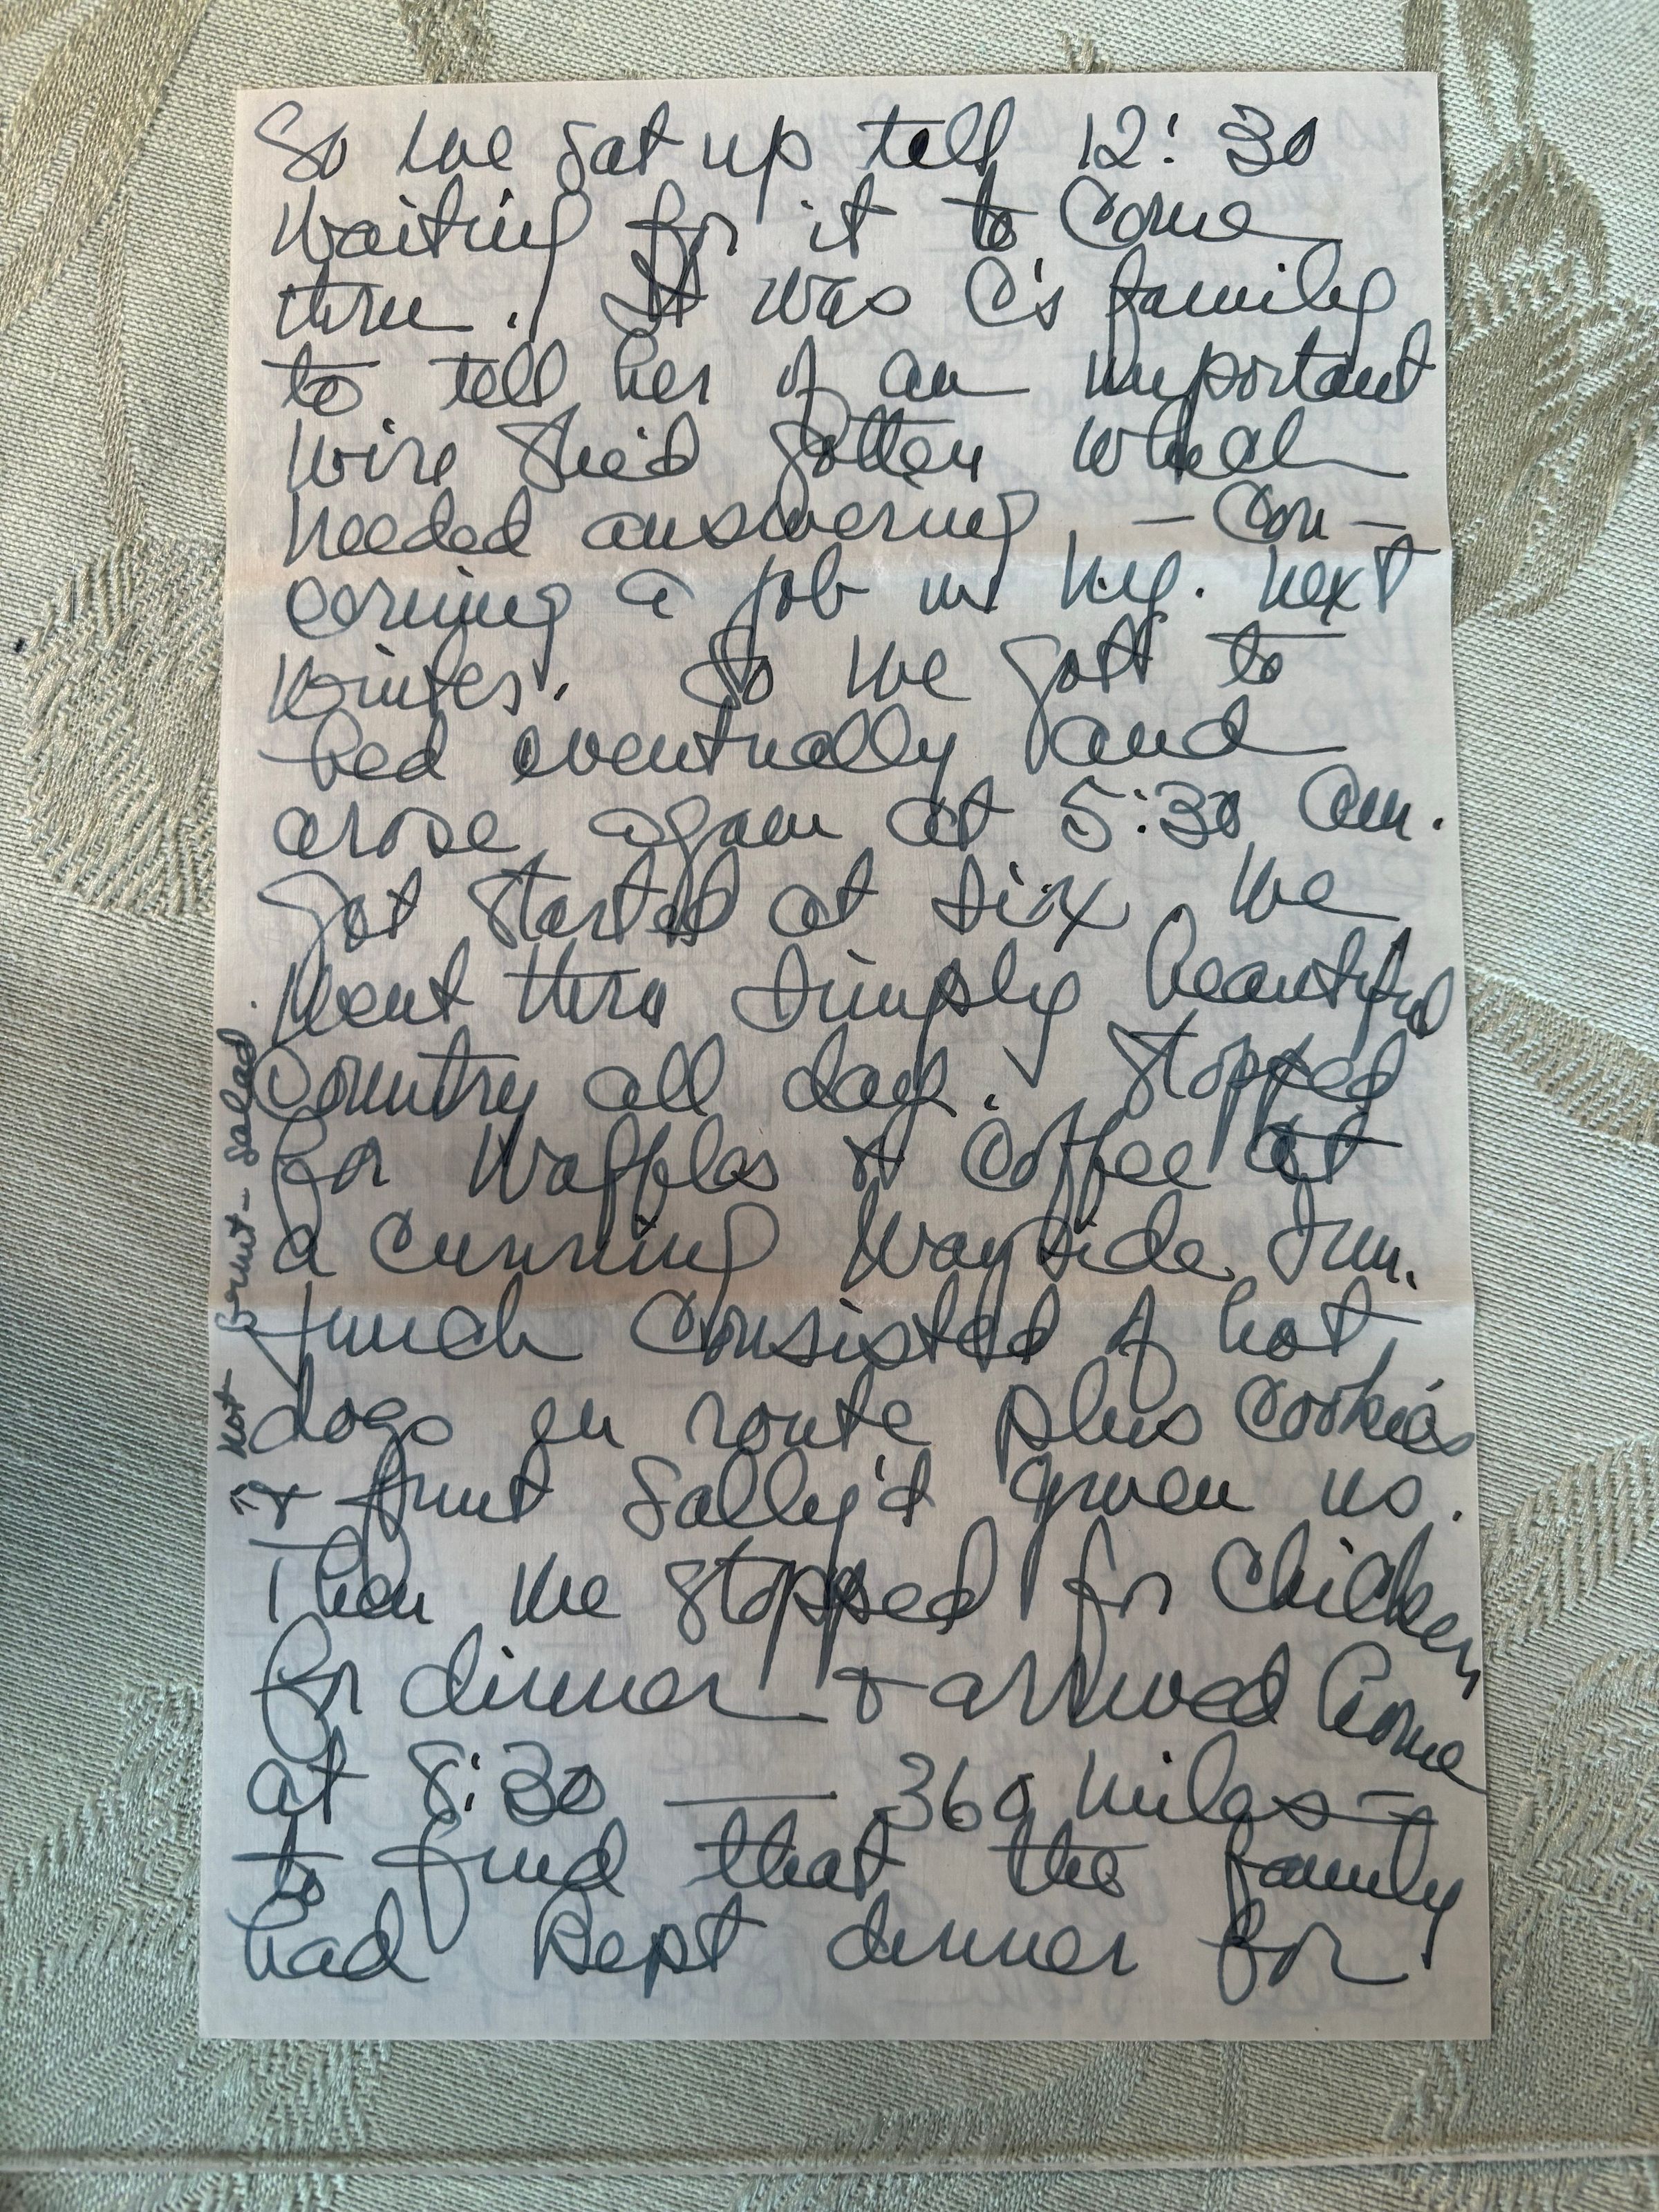 So we sat up till 12:30
waiting for it to come
thru. It was C's family
to tell her of an important
wire she'd gotten which
needed answering - Con-
cerning a job in N.Y. next
winter. So we gott to
bed eventually and
arose again at 5:30 am.
Got started at six. We
went thru simply beautiful
country all day. Stopped
for waffles & coffee at
a cunning Wayside Inn.
Lunch consisted of hot
dogs en route plus cookies
& fruit Sally'd given us.
Then we stopped for chicken
for dinner & arrived home
at 8:30 — 360 miles -
to find that the family
had kept dinner for
↑ not fruit - salad.